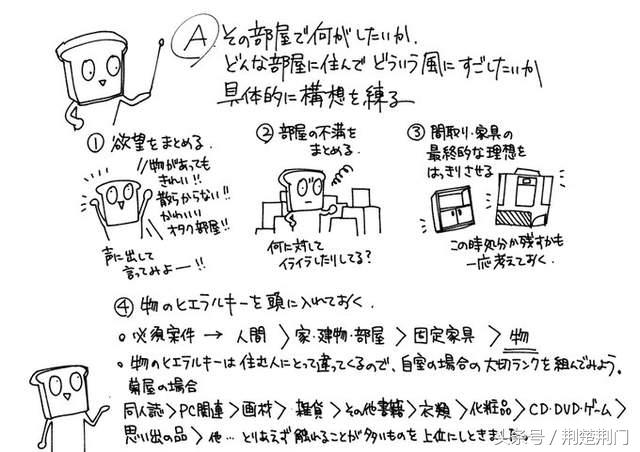 A その部屋で何がしたいか.
どんな部屋に住んで どういう風にすごしたいか
具体的に構想を練る
① 欲望をまとめる.
物があっても
きれい!!
散らからない!!
かわいい
オタク部屋!!
声に出して
言ってみよー!!
② 部屋の不満を
まとめる.
何に対して
イライラしたりしてる?
③ 間取り・家具の
最終的な理想を
はっきりさせる
この時処分か残すかも
一応考えておく.
④ 物のヒエラルキーを頭に入れておく.
○ 必須案件 → 人間 > 家・建物・部屋 > 固定家具 > 物
○ 物のヒエラルキーは住む人によって違ってくるので、自室の場合の大切ランクを組んでみよう。
菊屋の場合
同人誌>PC関連>画材>雑貨>その他書籍>衣類>化粧品>CD・DVD・ゲーム>
思い出の品>他… とりあえず触れることが多いものを上位にしときました。
头条号 / 荆楚荆门